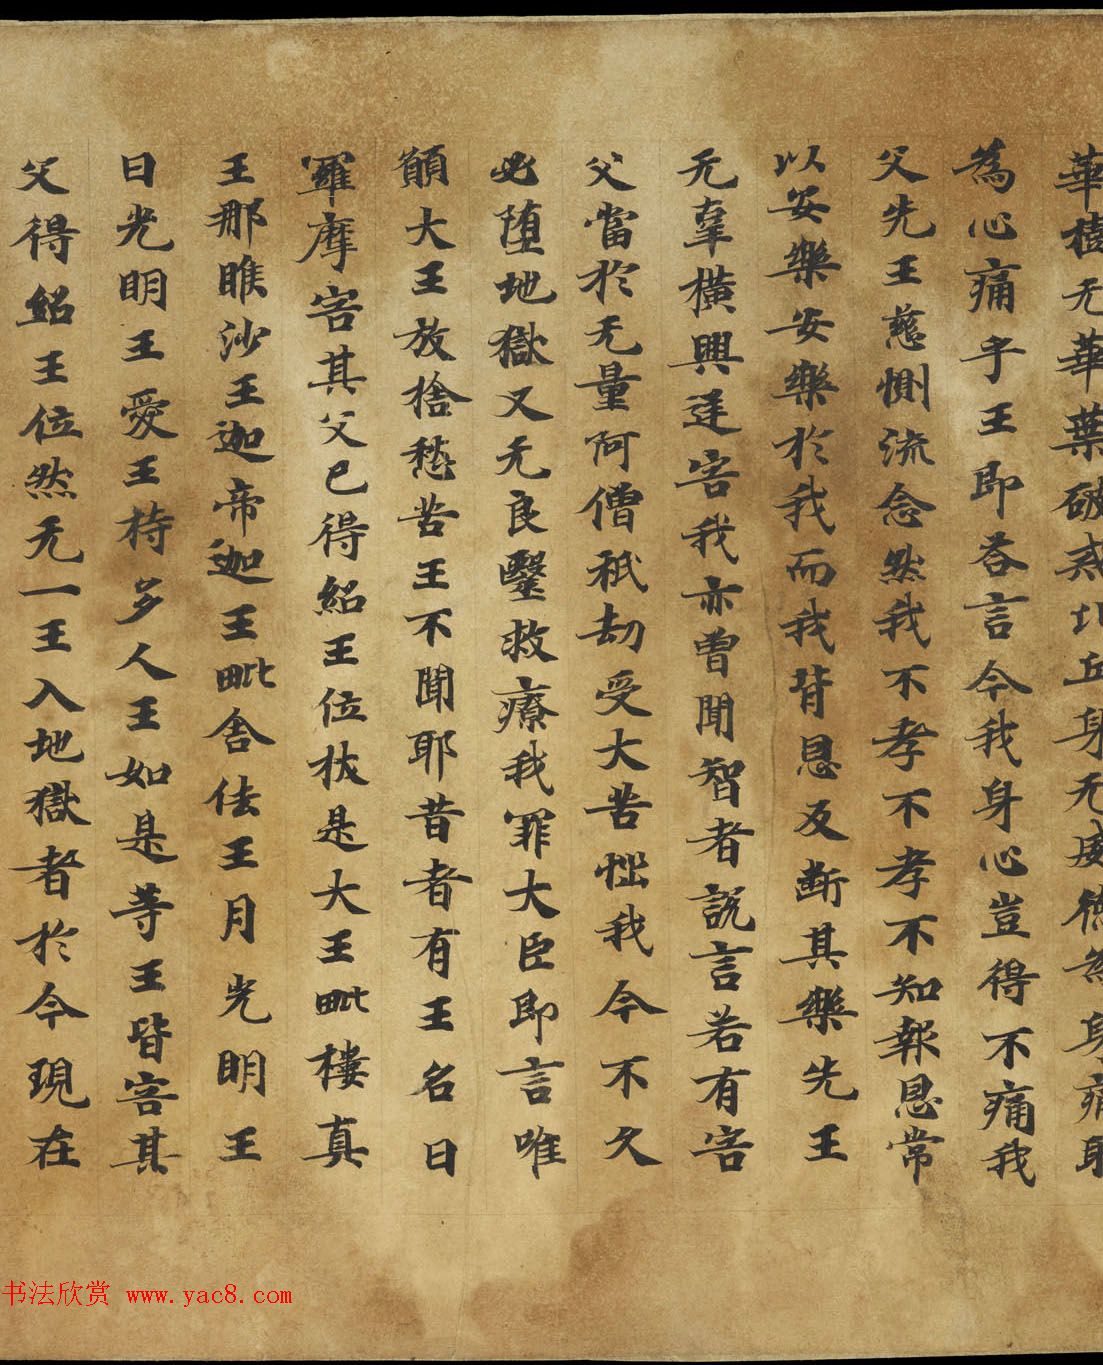 華樹无華葉破惑比丘身无威德為身痛耶
為心痛乎王即荅言今我身心豈得不痛我
父先王慈惻流念然我不孝不孝不知報恩常
以安樂安樂於我而我背恩反断其樂先王
无辜橫興逆害我亦曾聞智者說言若有害
父當於无量阿僧祇劫受大苦惱我今不久
必墮地獄又无良醫救療我罪大臣即言唯
願大王放捨愁苦王不聞耶昔者有王名曰
羅摩害其父已得紹王位拔是大王毗樓真
王那睢沙王迦帝迦王毗舍佉王月光明王
日光明王愛王持多人王如是等王皆害其
父得紹王位然无一王入地獄者於今現在
书法欣赏 www.yac8.com